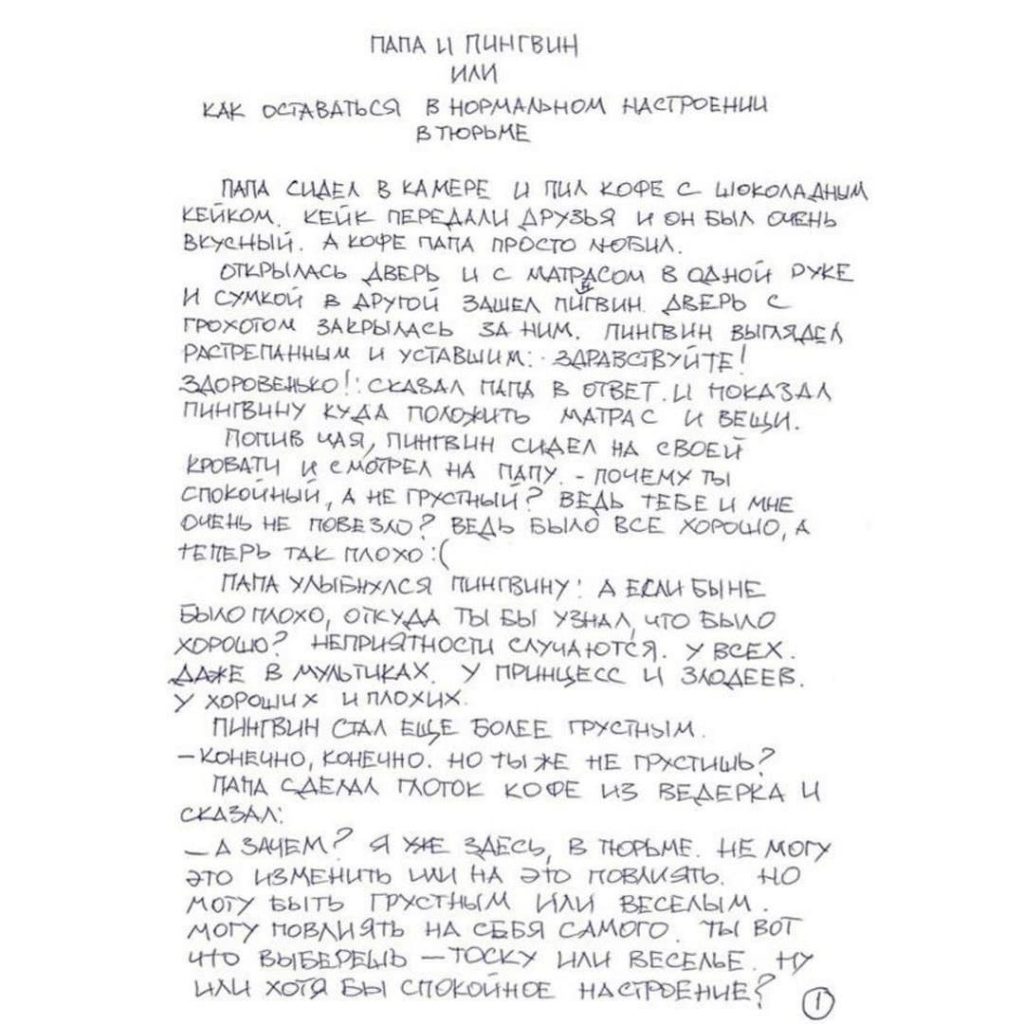 ПАПА И ПИНГВИН
ИЛИ
КАК ОСТАВАТЬСЯ В НОРМАЛЬНОМ НАСТРОЕНИИ
В ТЮРЬМЕ
ПАПА СИДЕЛ В КАМЕРЕ И ПИЛ КОФЕ С ШОКОЛАДНЫМ
КЕЙКОМ. КЕЙК ПЕРЕДАЛИ ДРУЗЬЯ И ОН БЫЛ ОЧЕНЬ
ВКУСНЫЙ. А КОФЕ ПАПА ПРОСТО ЛЮБИЛ.
ОТКРЫЛАСЬ ДВЕРЬ И С МАТРАСОМ В ОДНОЙ РУКЕ
И СУМКОЙ В ДРУГОЙ ЗАШЕЛ ПИНГВИН. ДВЕРЬ С
ГРОХОТОМ ЗАКРЫЛАСЬ ЗА НИМ. ПИНГВИН ВЫГЛЯДЕЛ
РАСТРЕПАННЫМ И УСТАВШИМ: - ЗДРАВСТВУЙТЕ!
ЗДОРОВЕНЬКО!: СКАЗАЛ ПАПА В ОТВЕТ. И ПОКАЗАЛ
ПИНГВИНУ КУДА ПОЛОЖИТЬ МАТРАС И ВЕЩИ.
ПОПИВ ЧАЯ, ПИНГВИН СИДЕЛ НА СВОЕЙ
КРОВАТИ И СМОТРЕЛ НА ПАПУ. - ПОЧЕМУ ТЫ
СПОКОЙНЫЙ, А НЕ ГРУСТНЫЙ? ВЕДЬ ТЕБЕ И МНЕ
ОЧЕНЬ НЕ ПОВЕЗЛО? ВЕДЬ БЫЛО ВСЕ ХОРОШО, А
ТЕПЕРЬ ТАК ПЛОХО :(
ПАПА УЛЫБНУЛСЯ ПИНГВИНУ: А ЕСЛИ БЫ НЕ
БЫЛО ПЛОХО, ОТКУДА ТЫ БЫ УЗНАЛ, ЧТО БЫЛО
ХОРОШО? НЕПРИЯТНОСТИ СЛУЧАЮТСЯ. У ВСЕХ.
ДАЖЕ В МУЛЬТИКАХ. У ПРИНЦЕСС И ЗЛОДЕЕВ.
У ХОРОШИХ И ПЛОХИХ.
ПИНГВИН СТАЛ ЕЩЕ БОЛЕЕ ГРУСТНЫМ.
- КОНЕЧНО, КОНЕЧНО. НО ТЫ ЖЕ НЕ ГРУСТИШЬ?
ПАПА СДЕЛАЛ ГЛОТОК КОФЕ ИЗ ВЕДЕРКА И
СКАЗАЛ:
- А ЗАЧЕМ? Я УЖЕ ЗДЕСЬ, В ТЮРЬМЕ. НЕ МОГУ
ЭТО ИЗМЕНИТЬ ИЛИ НА ЭТО ПОВЛИЯТЬ. НО
МОГУ БЫТЬ ГРУСТНЫМ ИЛИ ВЕСЕЛЫМ.
МОГУ ПОВЛИЯТЬ НА СЕБЯ САМОГО. ТЫ ВОТ
ЧТО ВЫБЕРЕШЬ - ТОСКУ ИЛИ ВЕСЕЛЬЕ. НУ
ИЛИ ХОТЯ БЫ СПОКОЙНОЕ НАСТРОЕНИЕ?
1